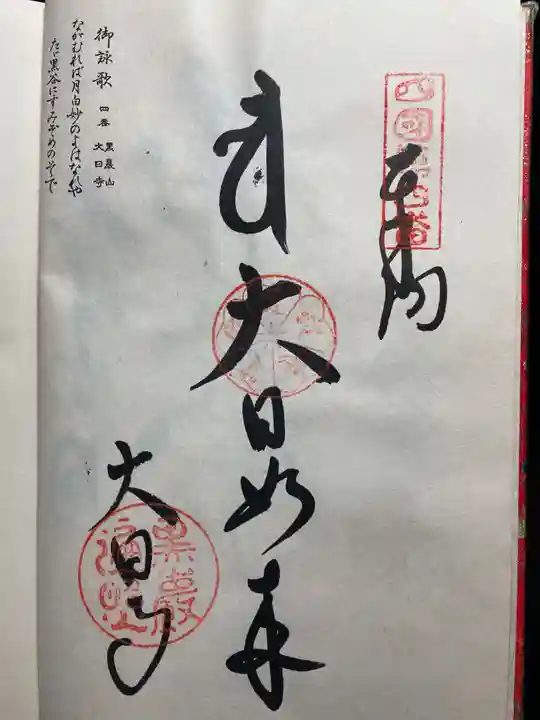 奉納
四國第四番
大日如来
大日寺
黒巖
遍照
御詠歌 四番 黒巖山 大日寺
ながむれば月白妙のよはなれや
たゞ黒谷にすみぞめのそで